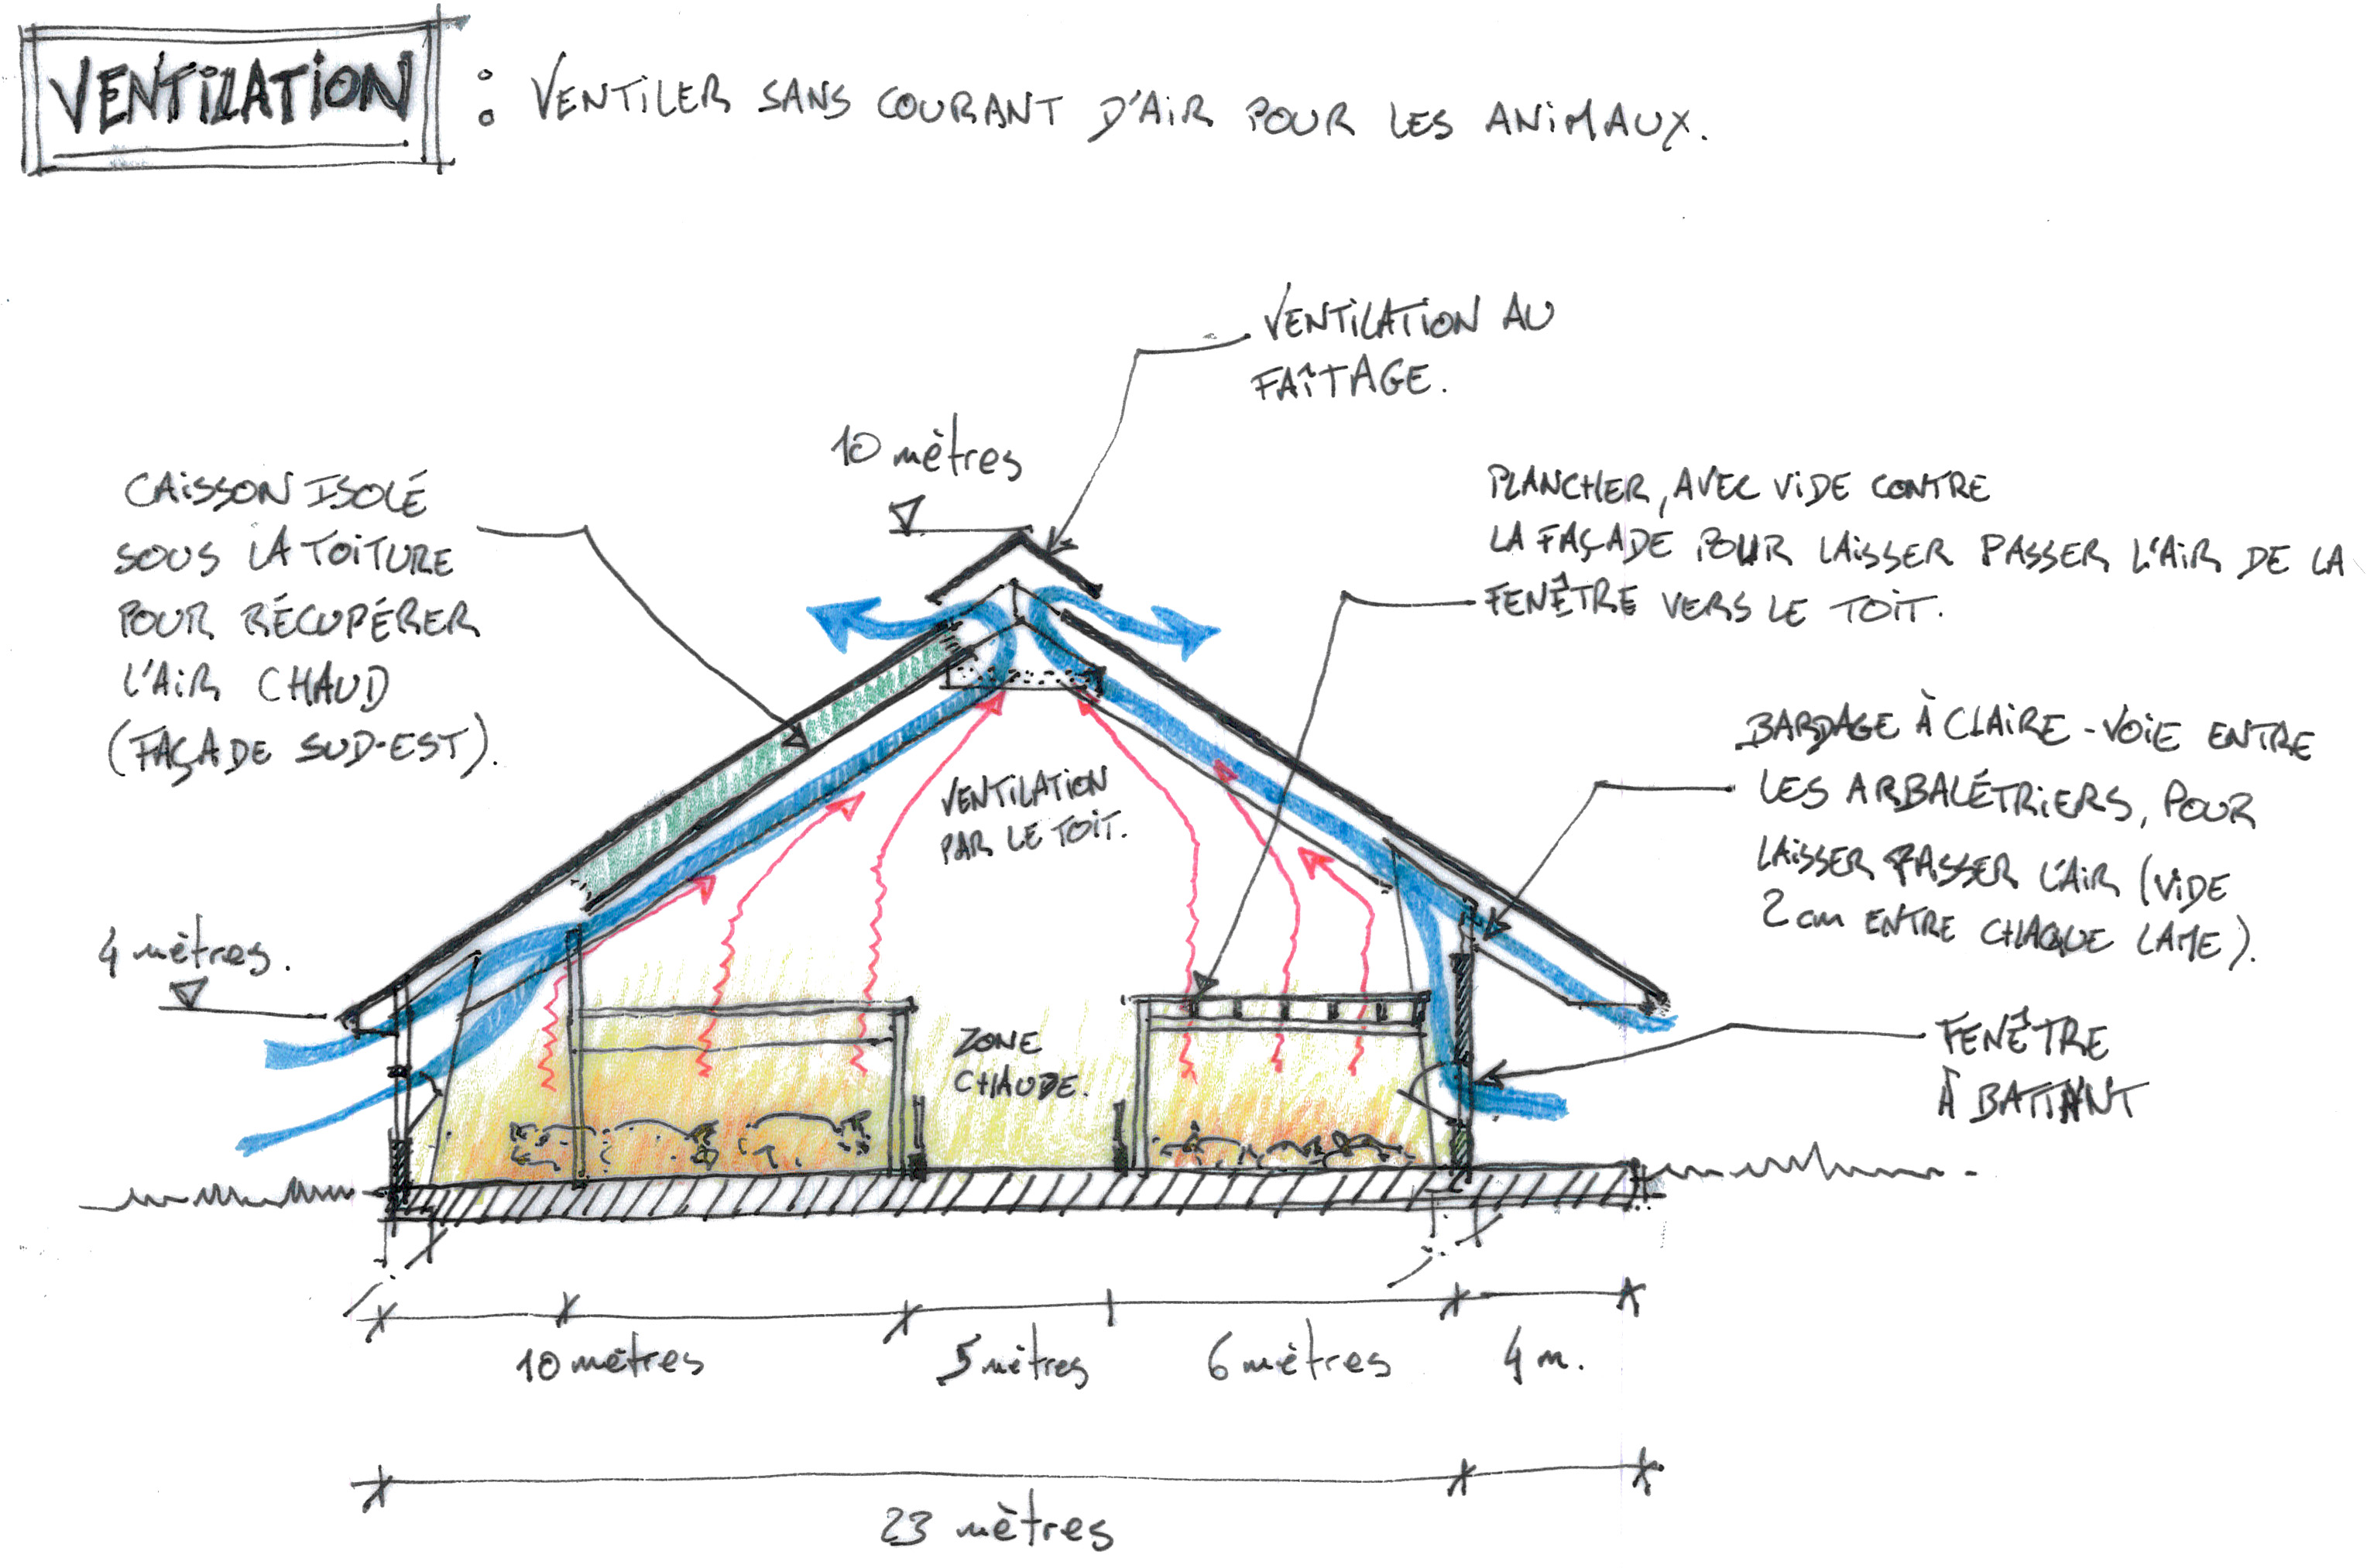 VENTILATION : VENTILER SANS COURANT D'AIR POUR LES ANIMAUX.
VENTILATION AU
FAÎTAGE.
10 mètres
CAISSON ISOLÉ
SOUS LA TOITURE
POUR RÉCUPÉRER
L'AIR CHAUD
(FAÇADE SUD-EST).
PLANCHER, AVEC VIDE CONTRE
LA FAÇADE POUR LAISSER PASSER L'AIR DE LA
FENÊTRE VERS LE TOIT.
BARDAGE À CLAIRE-VOIE ENTRE
LES ARBALÉTRIERS, POUR
LAISSER PASSER L'AIR (VIDE
2 cm ENTRE CHAQUE LAME).
VENTILATION
PAR LE TOIT.
4 mètres.
ZONE
CHAUDE.
FENÊTRE
À BATTANT
10 mètres
5 mètres
6 mètres
4 m.
23 mètres